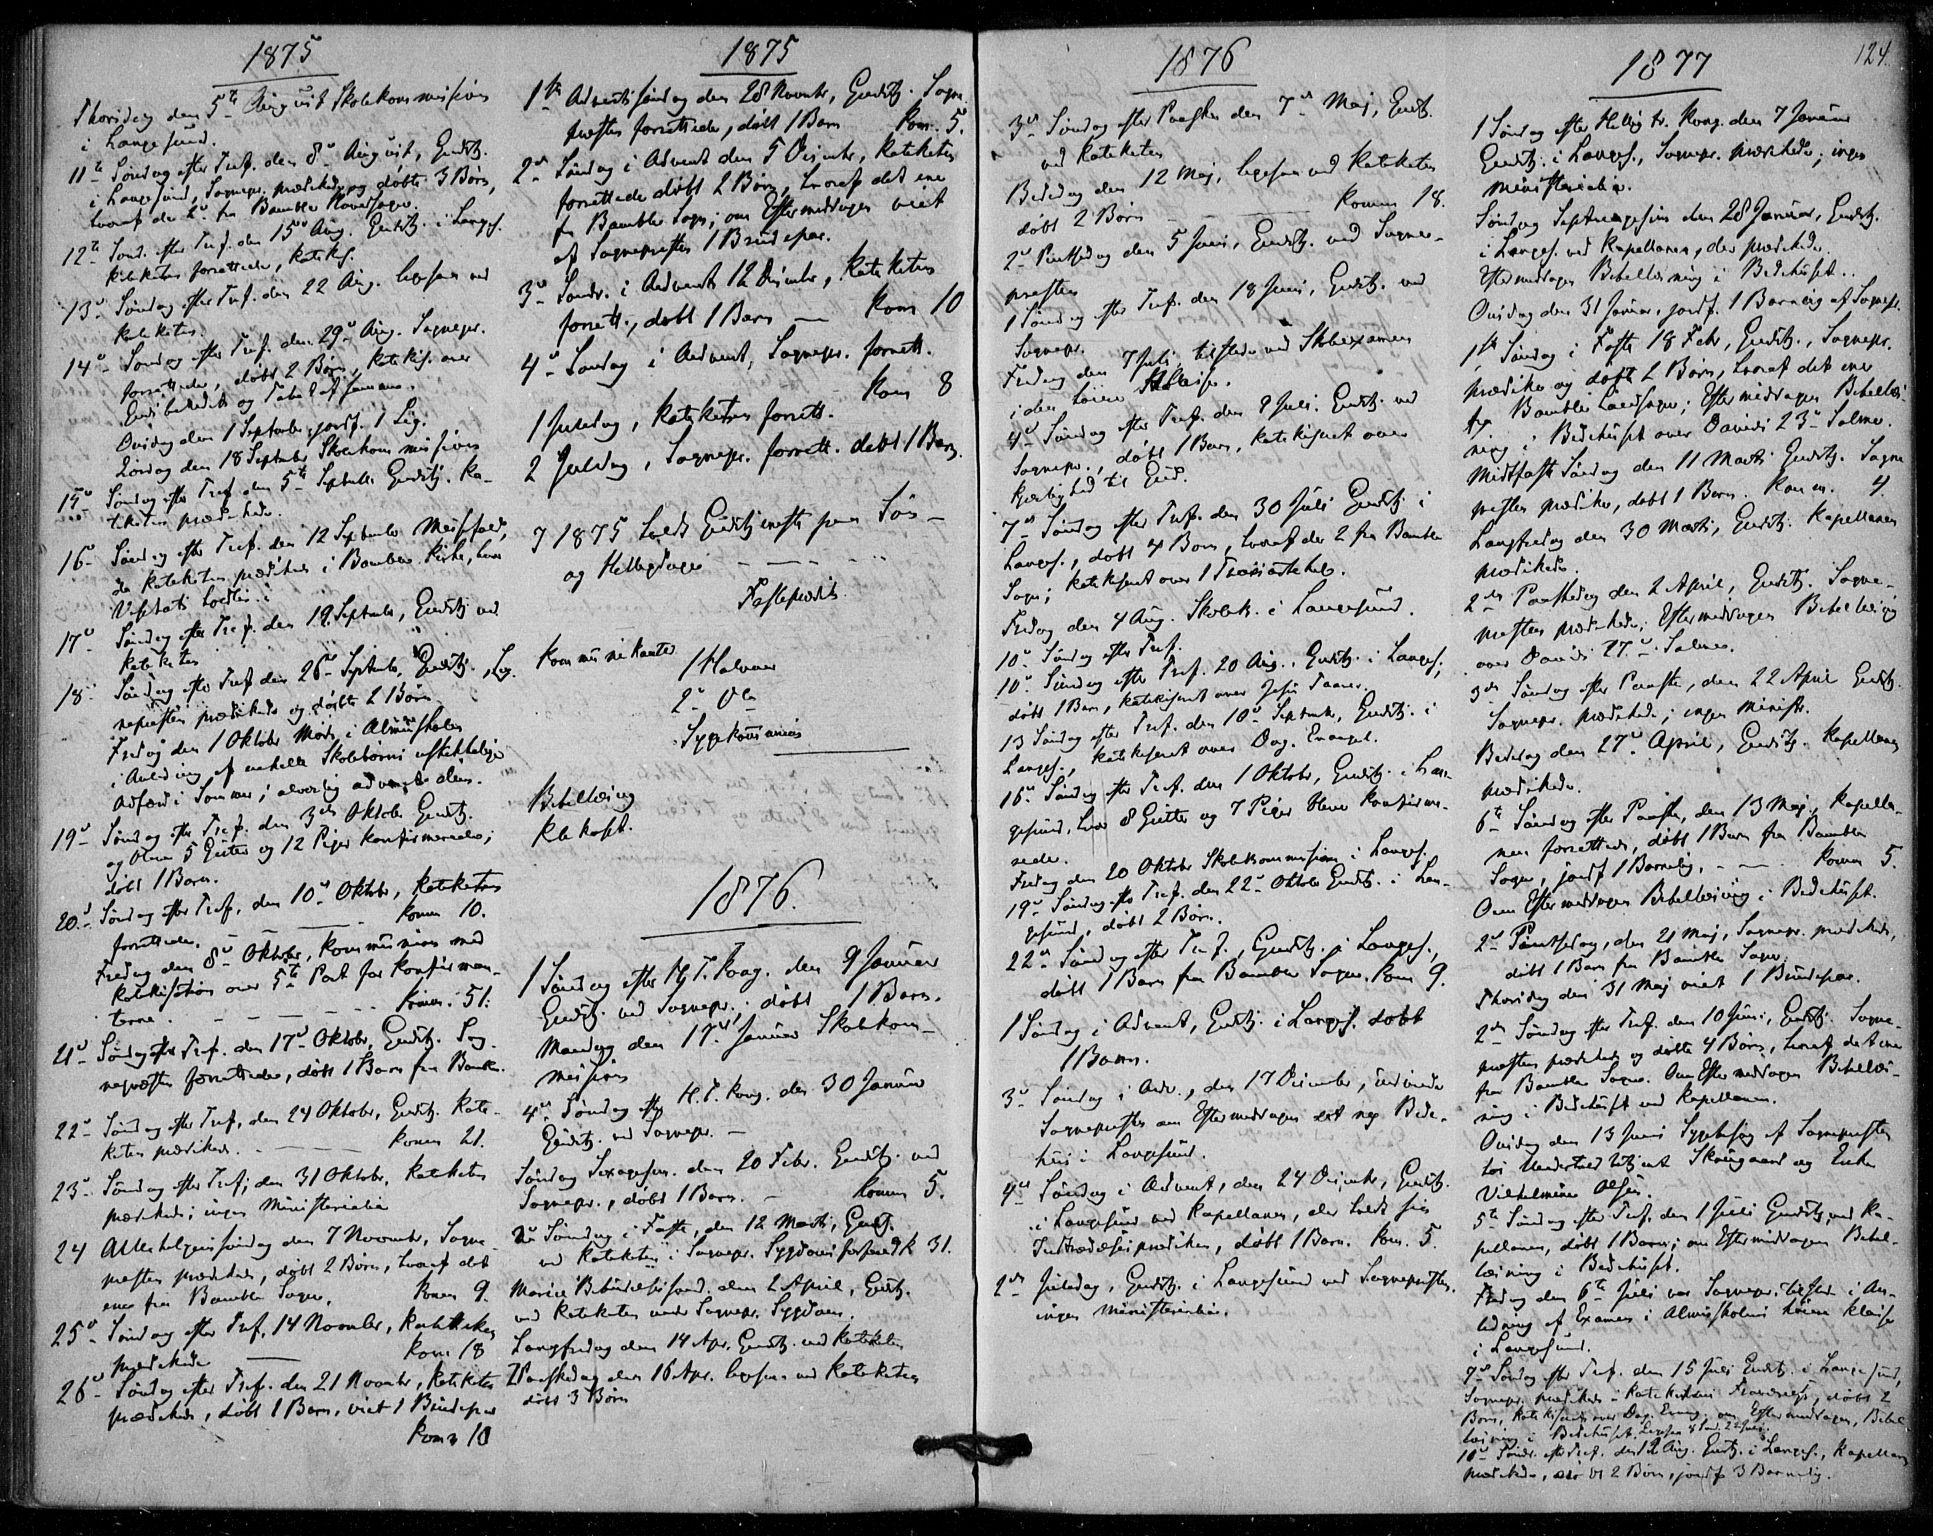 1875
Thorsdag den 5te August Skolekommission
i Langesund.
11te Søndag efter Tref. den 8de August, Gudstj.
i Langesund, Sognepr. prædikede og døbte 3 Børn,
hvoraf de 2de fra Bamble Hovedsogn.
12te Sønd. efter Tref. den 15de Aug. Gudstj. i Langes.
Kateketen forrettede, katekis.
13de Søndag efter Tref. den 22 Aug. ved
Kateketen.
14de Søndag efter Tref. den 29de Aug. Sognepr.
forrettede, døbt 2 Børn, katekis. over
Onsdag den 1 September, jordf. 1 Lig.
Lørdag den 18 September Skolekommission
15de Søndag efter Tref. den 5te Septemb. Gudstj. Ka-
teketen prædikede.
16de Søndag efter Tref. den 12 September Messefald,
da Kateketen prædikede i Bamble Kirke, hvor
17de Søndag efter Tref. den 19 September, Gudstj. ved
Kateketen
18de Søndag efter Tref. den 26de September, Gudstj., Sog-
nepresten prædikede og døbte 2 Børn.
Fredag den 1 Oktober Møde i Almueskolen
i Anledning af enkelte Skolebørns uskikkelige
Adfærd i Sommer; alvorlig advarede dem.
19de Søndag efter Tref. den 3die Oktober Gudstj.
og bleve 5 Gutter og 12 Piger konfirmerede;
døbt 1 Barn.
20de Søndag efter Tref. den 10de Oktober, Kateketen
forrettede. Komm. 10.
Fredag den 8de Oktober, Kommunion med
Katekisation over 5te Part for Konfirman-
terne. Komm. 51.
21de Søndag efter Tref. den 17de Oktober, Gudstj. Sog-
nepresten forrettede, døbt 1 Barn fra Bamble.
22de Søndag efter Tref. den 24 Oktober, Gudstj. Kate-
keten prædikede. Komm. 21.
23de Søndag efter Tref. den 31 Oktober, Kateketen
prædikede; ingen Ministerialia
24 Allehelgensøndag den 7 November, Sogne-
presten prædikede, døbt 2 Børn, hvoraf det
ene fra Bamble Sogn. Komm. 9.
25de Søndag efter Tref. 14 November, Kateketen
prædikede Kom. 18
26de Søndag efter Tref. den 21 November, Kateketen
prædikede, døbt 1 Barn, viet 1 Brudepar
Kom. 10
1875
1ste Adventssøndag den 28 Novembr., Gudstj. Sogne-
presten forrettede, døbt 1 Barn Kom. 5.
2den Søndag i Advent den 5 Decembr., Kateketen
forrettede døbt 2 Børn, hvoraf det ene
fra Bamble Sogn; om Eftermiddagen viet
af Sognepresten 1 Brudepar.
3die Søndag i Advent 12 Decembr., Kateketen
forrett., døbt 1 Barn — Kom. 10
4de Søndag i Advent, Sognepr. forrett.
Kom. 8
1 Juledag, Kateketen forrett.
2 Juledag, Sognepr. forrett. døbt 1 Barn.
I 1875 holdt Gudstjeneste paa Søn-
og Helligdage
Fasteprædik.
Kommunikanter 1 Halvaar
2de Do
Sygekommunion
Bibellæsning
Kirkekost.
1876.
1 Søndag efter H. T. Kong. den 9 Januar
Gudstj. ved Sognepr., døbt 1 Barn.
Mandag den 17de Januar Skolekom-
mission
4de Søndag efter H. T. Kong. den 30 Januar
Gudstj. ved Sognepr. —
Søndag Sexagesim. den 20 Febr. Gudstj. ved
Sognepr., døbt 1 Barn. — Komm. 5.
2den Søndag i Faste, den 12 Marts, Gudstj.
ved Kateketen i Sognepr. Sygdomsforfald K 31.
Mariæ Bebudelsessønd. den 2 April, Gudstj.
ved Kateketen under Sognepr. Sygdom.
Langfredag den 14 Apr. Gudstj. ved Kateketen
2 Paaskedag den 16 Apr. ved Kateketen
døbt 3 Børn
1876
3die Søndag efter Paaske den 7de Maj, Gudstj.
ved Kateketen
Bededag den 12 Maj, ved Kateketen
døbt 2 Børn — Komm. 18.
2den Pintsedag den 5 Juni, Gudstj. ved Sogne-
presten
1 Søndag efter Tref. den 18 Juni, Gudstj. ved
Sognepr.
Fredag den 7 Juli tilstede ved Skoleexamen
i den høiere Klasse.
4de Søndag efter Tref. den 9 Juli. Gudstj. ved
Sognepr., døbt 1 Barn, katekiseret over
Kjærlighed til Gud.
7de Søndag efter Tref. den 30 Juli Gudstj. i
Langes., døbt 4 Børn, hvoraf de 2 fra Bamble
Sogn; katekiseret over 1 Troesartikel.
Fredag den 4 Aug. Skolek. i Langesund.
10de Søndag efter Tref.
10de Søndag efter Tref. 20 Aug. Gudstj. i Langes.,
døbt 1 Barn, katekiseret over Jesu Taarer.
13 Søndag efter Tref. den 10de Septembr., Gudstj. i
Langes., katekiseret over Dag. Evangel.
16de Søndag efter Tref. den 1 Oktober, Gudstj. i Lan-
gesund, hvor 8 Gutter og 7 Piger bleve konfirme-
rede.
Fredag den 20 Oktober Skolekommission i Langes.
19de Søndag efter Tref. den 22de Oktober Gudstj. i Lan-
gesund, døbt 2 Børn.
22de Søndag efter Tref., Gudstj. i Langes.,
døbt 1 Barn fra Bamble Sogn. Kom. 9.
1 Søndag i Advent, Gudstj. i Langes. døbt
1 Barn.
3die Søndag i Adv., den 17 December, indviede
Sognepresten om Eftermiddagen det nye Bede-
hus i Langesund.
4de Søndag i Advent, den 24 December, Gudstj.
i Langesund ved Kapellanen, der holdt sin
Introdusesprædiken, døbt 1 Barn. Kom. 5.
2den Juledag, Gudstj. i Langesund ved Sognepresten,
ingen Ministerialia.
1877
124.
1 Søndag efter Hellig tr. Kong. den 7 Januar
Gudstj. i Langes., Sognepr. prædikede, ingen
Ministerialia.
Søndag Septuagesima den 28 Januar, Gudstj.
i Langes. ved Kapellanen, der prædikede.
Eftermiddagen Bibellæsning i Bedehuset.
Onsdag den 31 Januar, jordf. 1 Barnelig af Sognepr.
1ste Søndag i Faste 18 Febr., Gudstj., Sognepr.
prædikede og døbte 2 Børn, hvoraf det ene
fra Bamble Landsogn; Eftermiddagen Bibellæs-
ning i Bedehuset over Davids 23de Salme.
Midfaste Søndag den 11 Marts Gudstj. Sogne-
presten prædikede, døbt 1 Barn. Komm. 4.
Langfredag den 30 Marts, Gudstj. Kapellanen
prædikede.
2den Paaskedag den 2 April, Gudstj. Sogne-
presten prædikede; Eftermiddagen Bibellæsning
over Davids 27de Salme.
3die Søndag efter Paaske, den 22 April Gudstj.
Sognepr. prædikede; ingen Ministr.
Bededag den 27de April, Gudstj. Kapellanen
prædikede.
6te Søndag efter Paaske, den 13 Maj, Kapella-
nen forrettede, døbt 1 Barn fra Bamble
Sogn, jordf. 1 Barnelig. — Komm. 5.
Om Eftermiddagen Bibellæsning i Bedehuset.
2den Pintsedag, den 21 Maj, Sognepr. prædikede,
døbt 1 Barn fra Bamble Sogn.
Thorsdag den 31 Maj viet 1 Brudepar.
2den Søndag efter Tref. den 10 Juni, Gudstj. Sogne-
presten prædikede og døbte 4 Børn, hvoraf det ene
fra Bamble Sogn. Om Eftermiddagen Bibellæs-
ning i Bedehuset ved Kapellanen.
Onsdag den 13 Juni Sygebesøg af Sognepresten
hos Skougaard og Enke
Vilhelmine Olsen.
5te Søndag efter Tref. den 1 Juli Gudstj. ved Ka-
pellanen, døbt 1 Barn; om Eftermiddagen Bibel-
læsning i Bedehuset.
Fredag den 6te Juli var Sognepr. tilstede i An-
ledning af Examen i Almueskolens høiere Klasse
i Langesund.
7de Søndag efter Tref. den 15 Juli Gudstj. i Langesund,
Sognepr. prædikede i Kateketens Fraværelse, døbt 2
Børn, katekiserede over Dag. Evang., om Eftermiddagen, Bibel-
læsning i Bedehuset.
10de Sønd. efter Tref. den 12 Aug. Gudstj. i Langes., Kapellanen
prædikede, 2 Børn, jordf. 3 Barnelig.